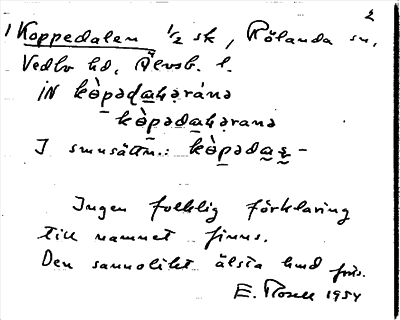 2
1 Koppedalen 1/2 sk, Rölanda sn,
Vedbo hd, Älvsb. l.
IN kò̱pəda̱həránə
kò̱pəda̱hərana
I smnsättn.: kò̱pəda̱ʂ̱ –
Ingen folklig förklaring
till namnet finns.
Den sannolikt älsta hmd
E. Rosell 1954